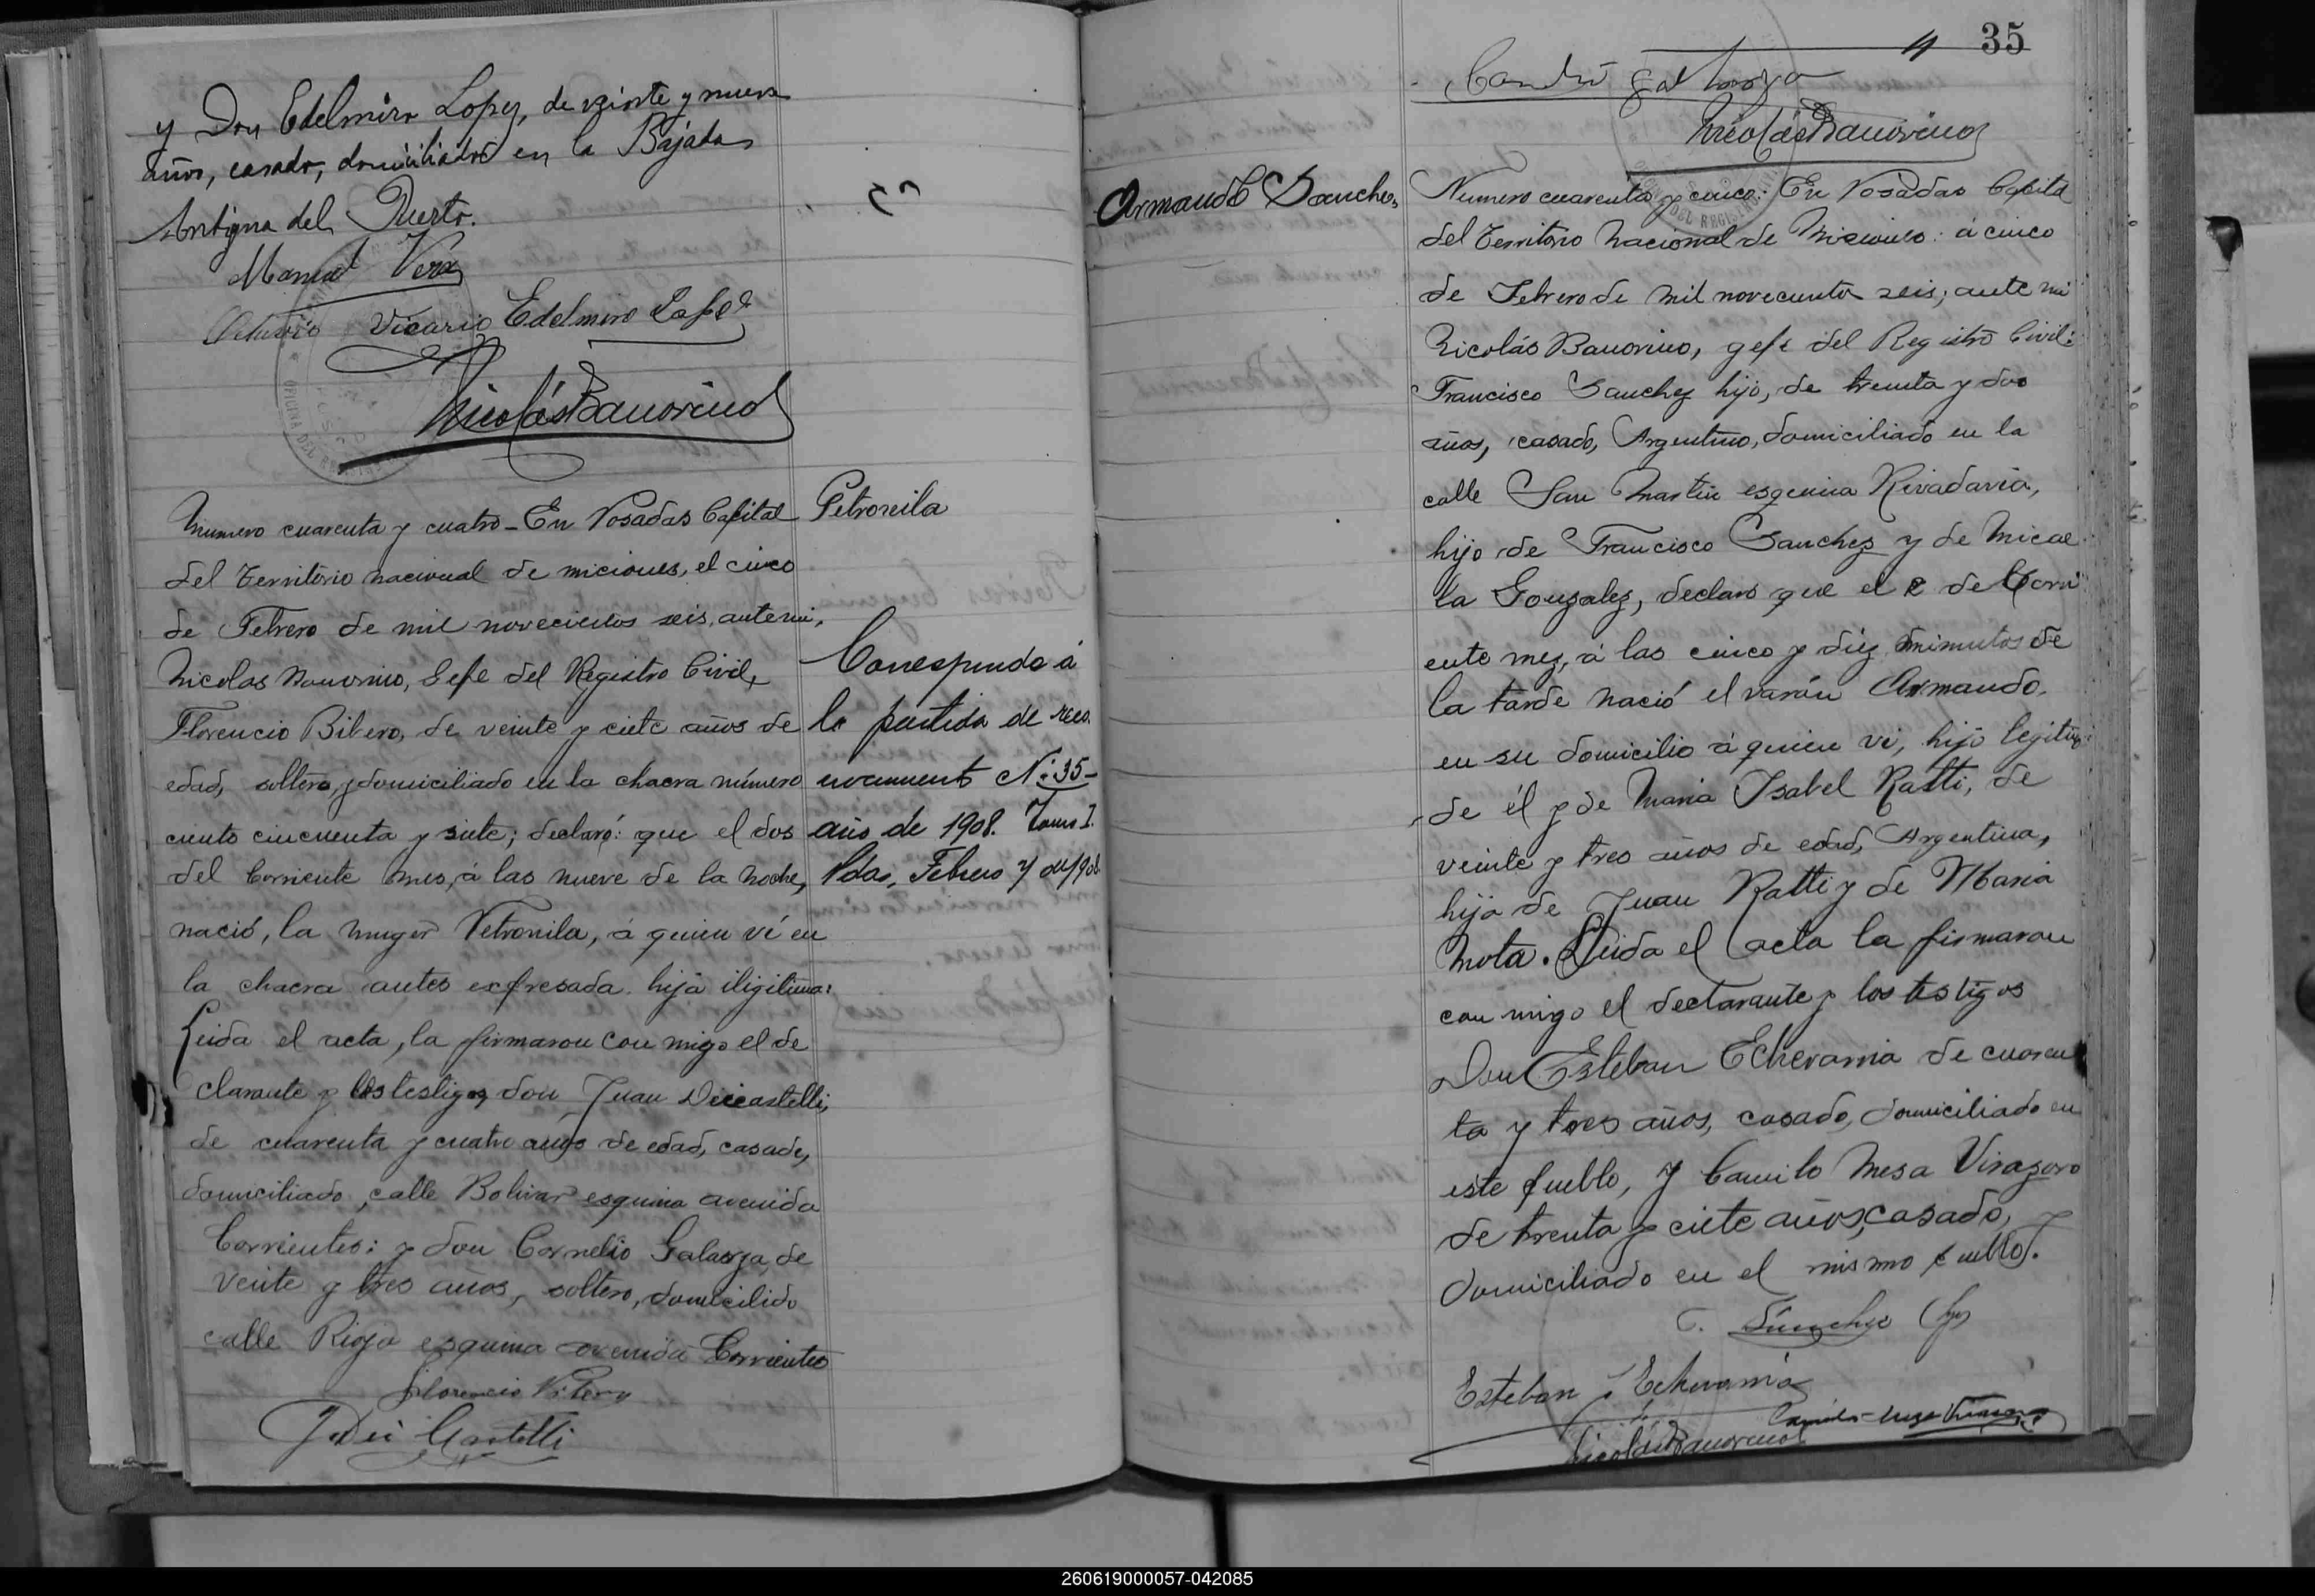 y Don Edelmiro Lopez, de veinte y nueve
años, casado, domiciliado en la Bajada
Antigua del Puerto.
Manuel Vera
Vicario Edelmiro Lopez
Nicolás Bauorino
Numero cuarenta y cuatro - En Posadas Capital
del Territorio nacional de miciones, el cinco
de Febrero de mil novecientos seis, ante mi,
Nicolas Bauorino, Gefe del Registro Civil,
Florencio Bibero, de veinte y ciete años de
edad, soltero, y domiciliado en la chacra número
ciento cincuenta y siete; declaró: que el dos
del Corriente mes, á las nueve de la noche,
nació, la muger Petronila, á quien ví en
la chacra antes expresada. hija iligitima:
Leida el acta, la firmaron con migo el de
clarante y los testigos don Juan Deicastelli,
de cuarenta y cuatro años de edad, casado,
domiciliado, calle Bolivar esquina avenida
Corrientes: y don Cornelio Galarza, de
veinte y tres años, soltero, domicilido
calle Rioja esquina avenida Corrientes
Florencio
J. Dei Castelli
Petronila
Corresponde á
la partida de reco.
nocimiento N.º 35-
año de 1908. Tomo I.
Pdas, Febrero 7 de 1908.
35
Nicolás Bauorino
Armando Sanchez
Numero cuarenta y cinco: En Posadas Capital
del Territorio Nacional de Misiones: á cinco
de Febrero de mil novecientos seis; ante mi
Nicolás Bauorino, gefe del Registro Civil:
Francisco Sanchez hijo, de treinta y dos
años, casado, Argentino, domiciliado en la
calle San Martin esquina Rivadavia,
hijo de Francisco Sanchez y de Micae
la Gonzalez, declaro que el 2 de Corri
ente mez, á las cinco y diez minutos de
la tarde nació el varón Armando.
en su domicilio á quien vi, hijo legitimo
de él y de Maria Isabel Ratti, de
veinte y tres años de edad, Argentina,
hija de Juan Ratti y de Maria
Mota. Leida el acta la firmaron
con migo el declarante y los testigos
Don Esteban Echevarria de cuaren
ta y tres años, casado, domiciliado en
este pueblo, y Camilo Mesa Virasoro
de trenta y ciete años, casado, y
domiciliado en el mismo pueblo.
Sanchez hijo
Esteban Echevarria
Camilo Mesa Virasoro
Nicolás Bauorino
260619000057-042085